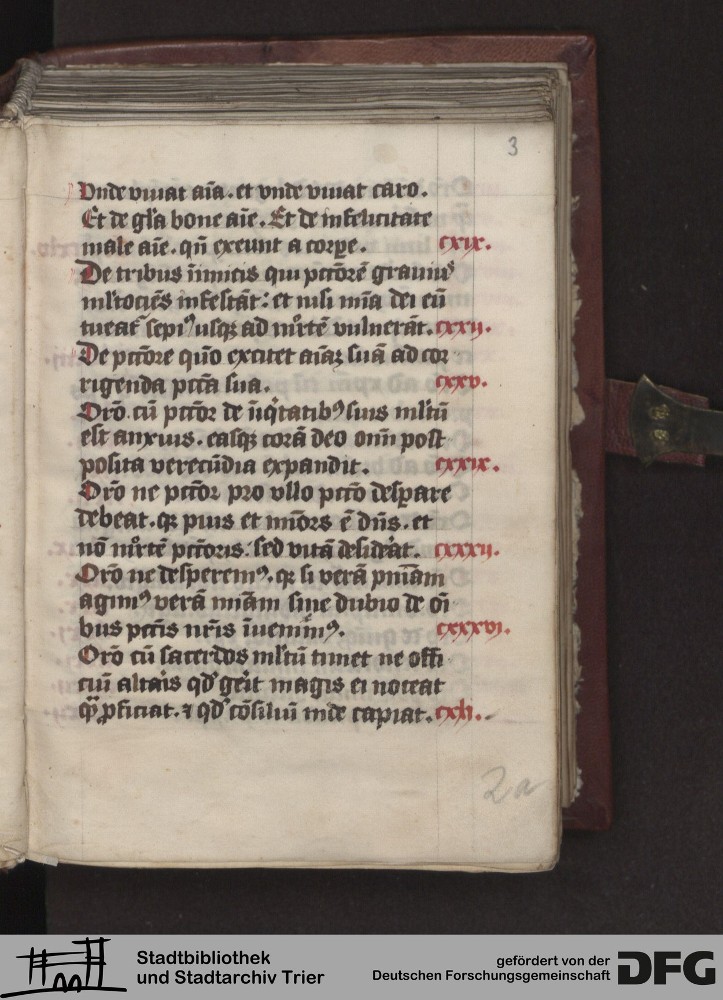 3
Vnde viuat aīa. et vnde viuat caro.
Et de gl'a bone aīe. Et de infelicitate
male aīe. qn̄ exeunt a corpꝑe. cxix.
De tribus īimicis qui pctōrē grauiꝰ
ml'tociēs infestāt: et nisi mīa dei eū
tueat᷑ sepiꝰ usqꝫ ad mͦrtē vulnerāt. cxxij.
De pctōre quō excitet aīaꝫ suā ad cor
rigenda pctā sua. cxxv.
Orō. cū pctōr de īiqͥtatibꝰ suis ml'tū
est anxius. easqꝫ corā deo om̄i post
posita verecūdia expandit. cxxix.
Orō ne pctōr pro vllo pctō desꝑare
debeat. qꝛ pius et mīors ē dn̄s. et
nō mͦrtē pctōris. sed vitā desid'at. cxxxij.
Orō ne desperemꝰ. qꝛ si verā pn̄iam
agimꝰ verā mīam sine dubio de oī
bus pctīs nr̄is īuenimꝰ. cxxxvi.
Orō cū sacerdos ml'tū timet ne offi
ciū altaris qd' gerit magis ei noceat
qͣꝫ ꝓficiat. ⁊ qd' cōsiliū inde capiat. cxli.
2a
Stadtbibliothek
und Stadtarchiv Trier
gefördert von der
Deutschen Forschungsgemeinschaft
DFG